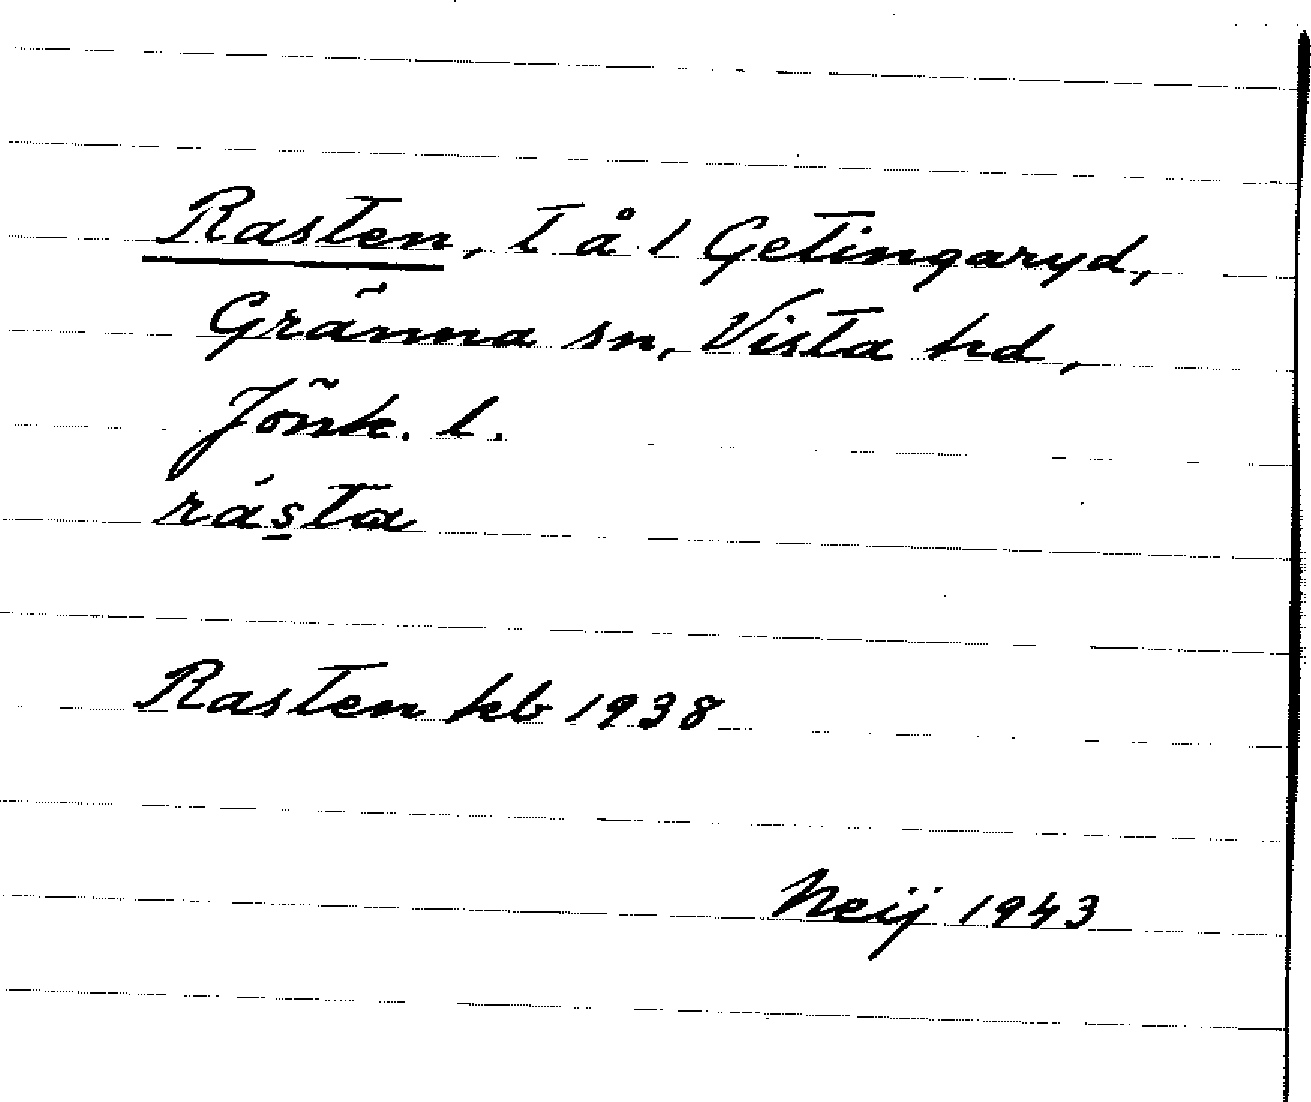 Rasten, t å 1 Getingaryd,
Gränna sn, Vista hd,
Jönk. l.
rás̱ta
Rasten kb 1938
Neij 1943